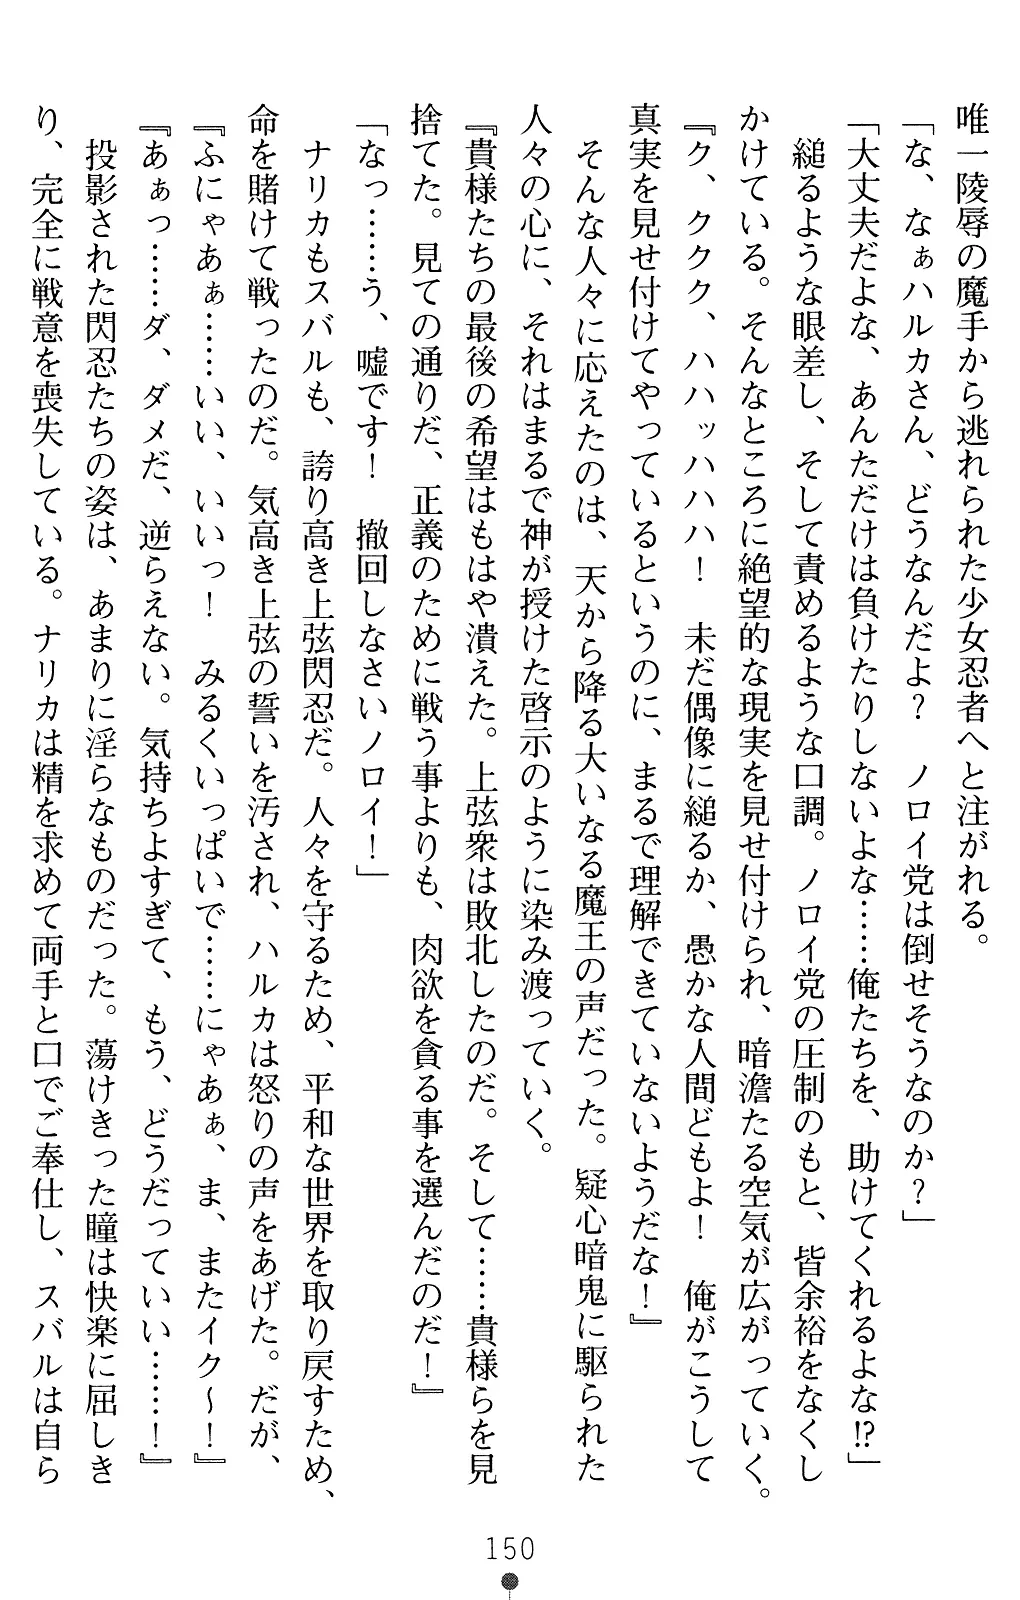 唯一陵辱の魔手から逃れられた少女忍者へと注がれる。
「な、なぁハルカさん、どうなんだよ？　ノロイ党は倒せそうなのか？」
「大丈夫だよな、あんただけは負けたりしないよな……俺たちを、助けてくれるよな!?」
　縋るような眼差し、そして責めるような口調。ノロイ党の圧制のもと、皆余裕をなくし
かけている。そんなところに絶望的な現実を見せ付けられ、暗澹たる空気が広がっていく。
『ク、ククク、ハハッハハハ！　未だ偶像に縋るか、愚かな人間どもよ！　俺がこうして
真実を見せ付けてやっているというのに、まるで理解できていないようだな！』
　そんな人々に応えたのは、天から降る大いなる魔王の声だった。疑心暗鬼に駆られた
人々の心に、それはまるで神が授けた啓示のように染み渡っていく。
『貴様たちの最後の希望はもはや潰えた。上弦衆は敗北したのだ。そして……貴様らを見
捨てた。見ての通りだ、正義のために戦う事よりも、肉欲を貪る事を選んだのだ！』
「なっ……う、嘘です！　撤回しなさいノロイ！」
　ナリカもスバルも、誇り高き上弦閃忍だ。人々を守るため、平和な世界を取り戻すため、
命を賭けて戦ったのだ。気高き上弦の誓いを汚され、ハルカは怒りの声をあげた。だが、
『ふにゃあぁ……いい、いいっ！　みるくいっぱいで……にゃあぁ、ま、またイク～！』
『あぁっ……ダ、ダメだ、逆らえない。気持ちよすぎて、もう、どうだっていい……！』
　投影された閃忍たちの姿は、あまりに淫らなものだった。蕩けきった瞳は快楽に屈しき
り、完全に戦意を喪失している。ナリカは精を求めて両手と口でご奉仕し、スバルは自ら
150